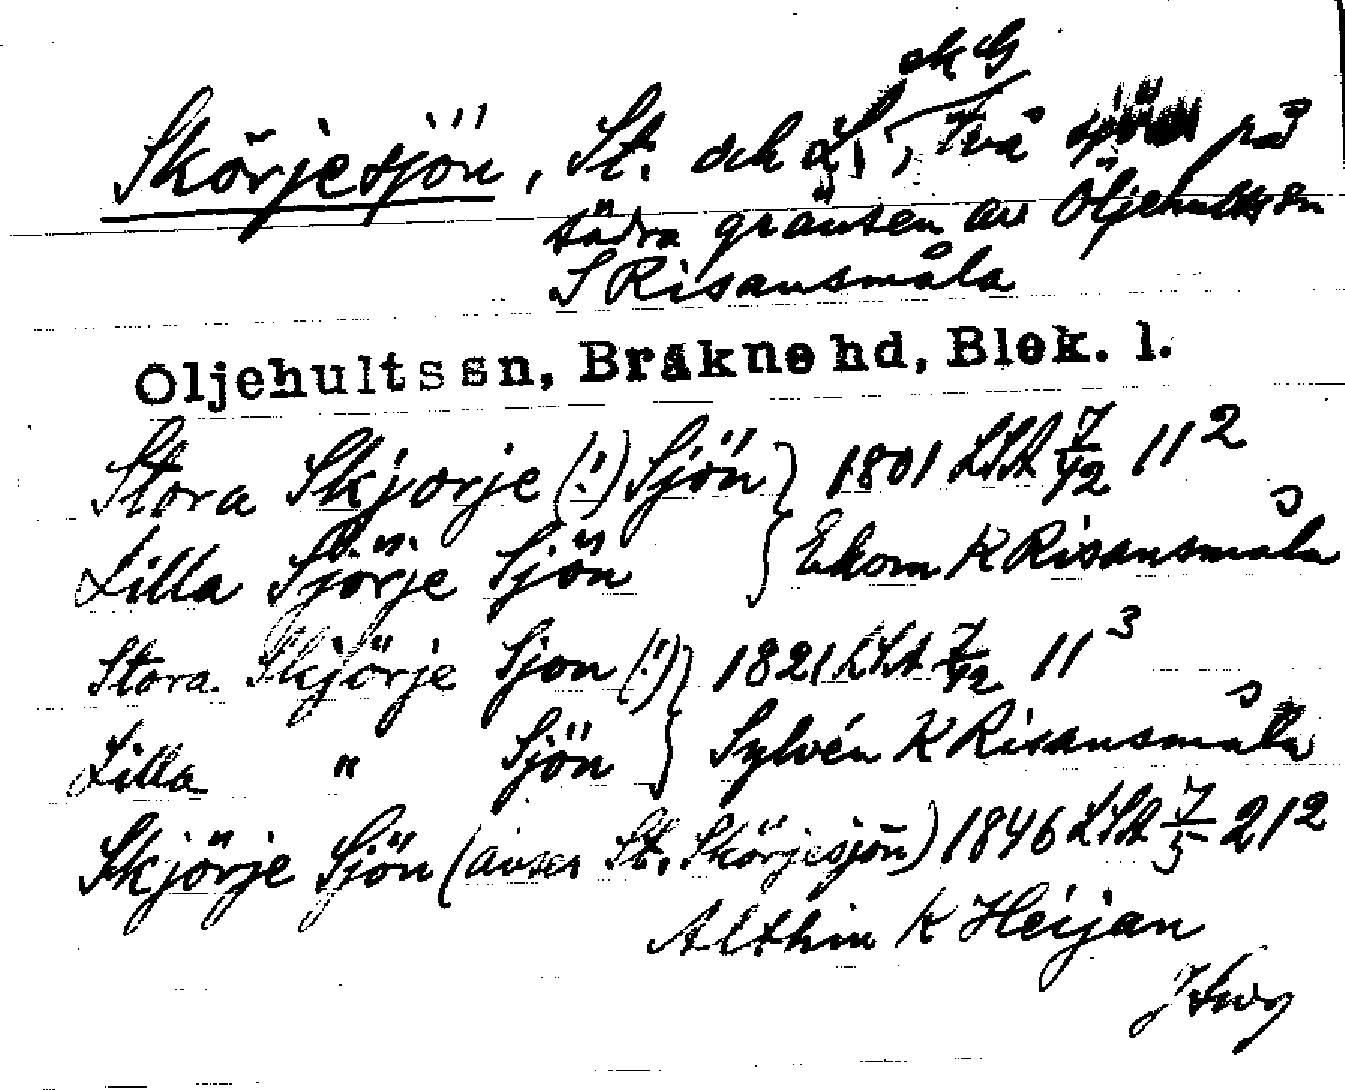 ek G
Skörjesjön, St. och L., två sjöar på
södra gränsen av Öljehults sn
S Risansmåla
Oljehultssn, Bräkne hd, Blek. l.
Stora Skjorje (!) Sjön } 1801 LSA 7/42 11²
Lilla Sjörje Sjön } Ekom K Risansmåla
Stora Skjörje Sjon (!) } 1821 LSA 7/42 11³
Lilla " Sjön } Sylvén K Risansmåla
Skjörje Sjön (avser St. Skörjesjön) 1846 LSA 7/5 212
Althin K Heijan